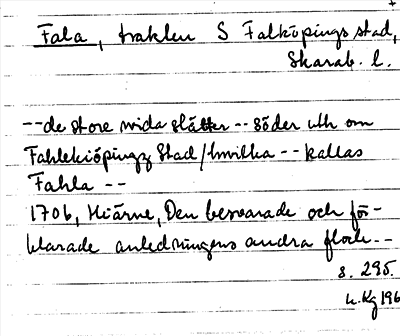 Fala, trakten S Falköpings stad,
Skarab. l.
--de store wida slätter -- söder uth om
Fahlekiöpingz Stad/hwilka -- kallas
Fahla --
1706, Hiärne, Den beswarade och för-
klarade anledningens andra flock --
s. 295.